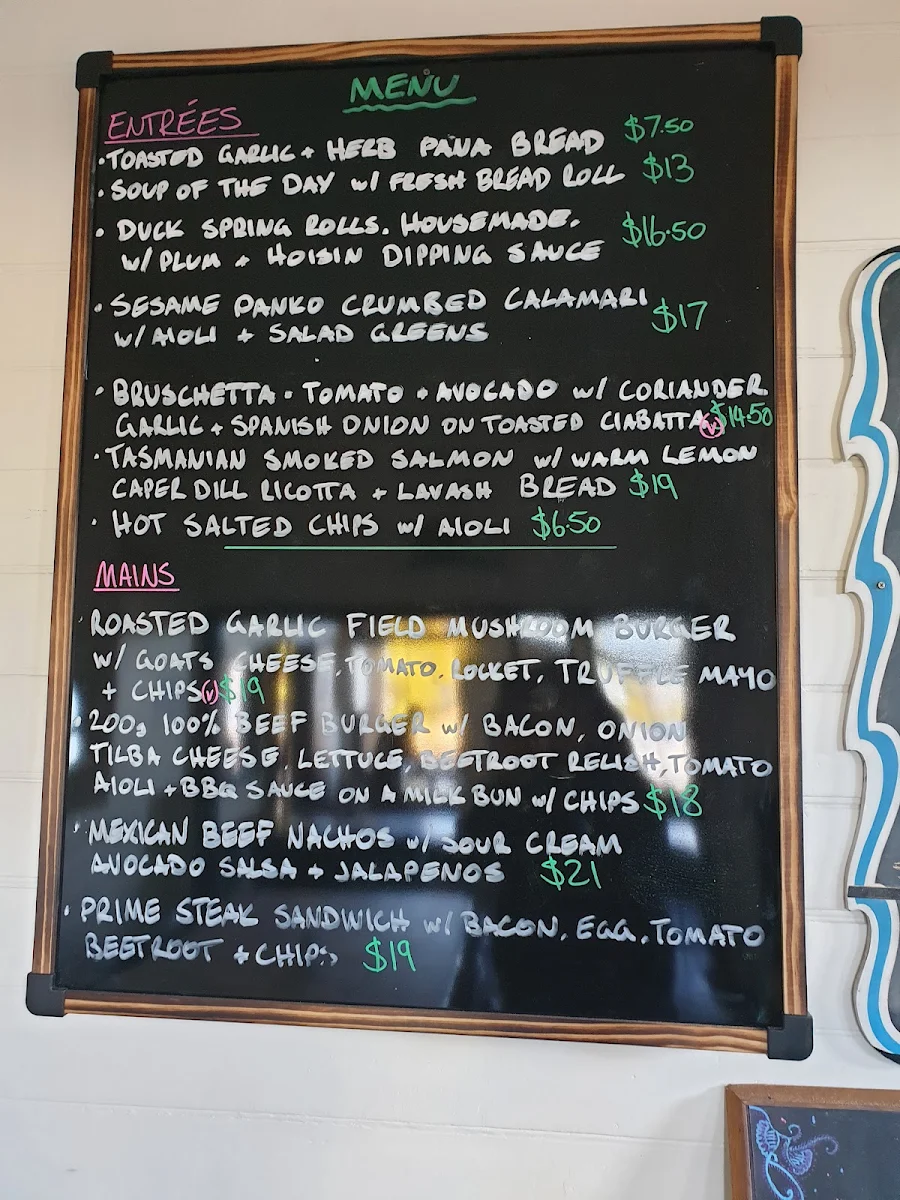 MENU
ENTRÉES
• TOASTED GARLIC + HERB PANA BREAD $7.50
• SOUP OF THE DAY w/ FRESH BREAD ROLL $13
• DUCK SPRING ROLLS. HOUSEMADE. $16.50
w/ PLUM + HOISIN DIPPING SAUCE
• SESAME PANKO CRUMBED CALAMARI $17
w/ AIOLI + SALAD GREENS
• BRUSCHETTA • TOMATO + AVOCADO w/ CORIANDER
GARLIC + SPANISH ONION ON TOASTED CIABATTA (V) $14.50
• TASMANIAN SMOKED SALMON w/ WARM LEMON
CAPER DILL RICOTTA + LAVASH BREAD $19
• HOT SALTED CHIPS w/ AIOLI $6.50
MAINS
• ROASTED GARLIC FIELD MUSHROOM BURGER
w/ GOATS CHEESE, TOMATO, ROCKET, TRUFFLE MAYO
+ CHIPS (V) $19
• 200g 100% BEEF BURGER w/ BACON, ONION
TILBA CHEESE, LETTUCE, BEETROOT RELISH, TOMATO
AIOLI + BBQ SAUCE ON A MILK BUN w/ CHIPS $18
• MEXICAN BEEF NACHOS w/ SOUR CREAM
AVOCADO SALSA + JALAPENOS $21
• PRIME STEAK SANDWICH w/ BACON, EGG, TOMATO
BEETROOT + CHIPS $19